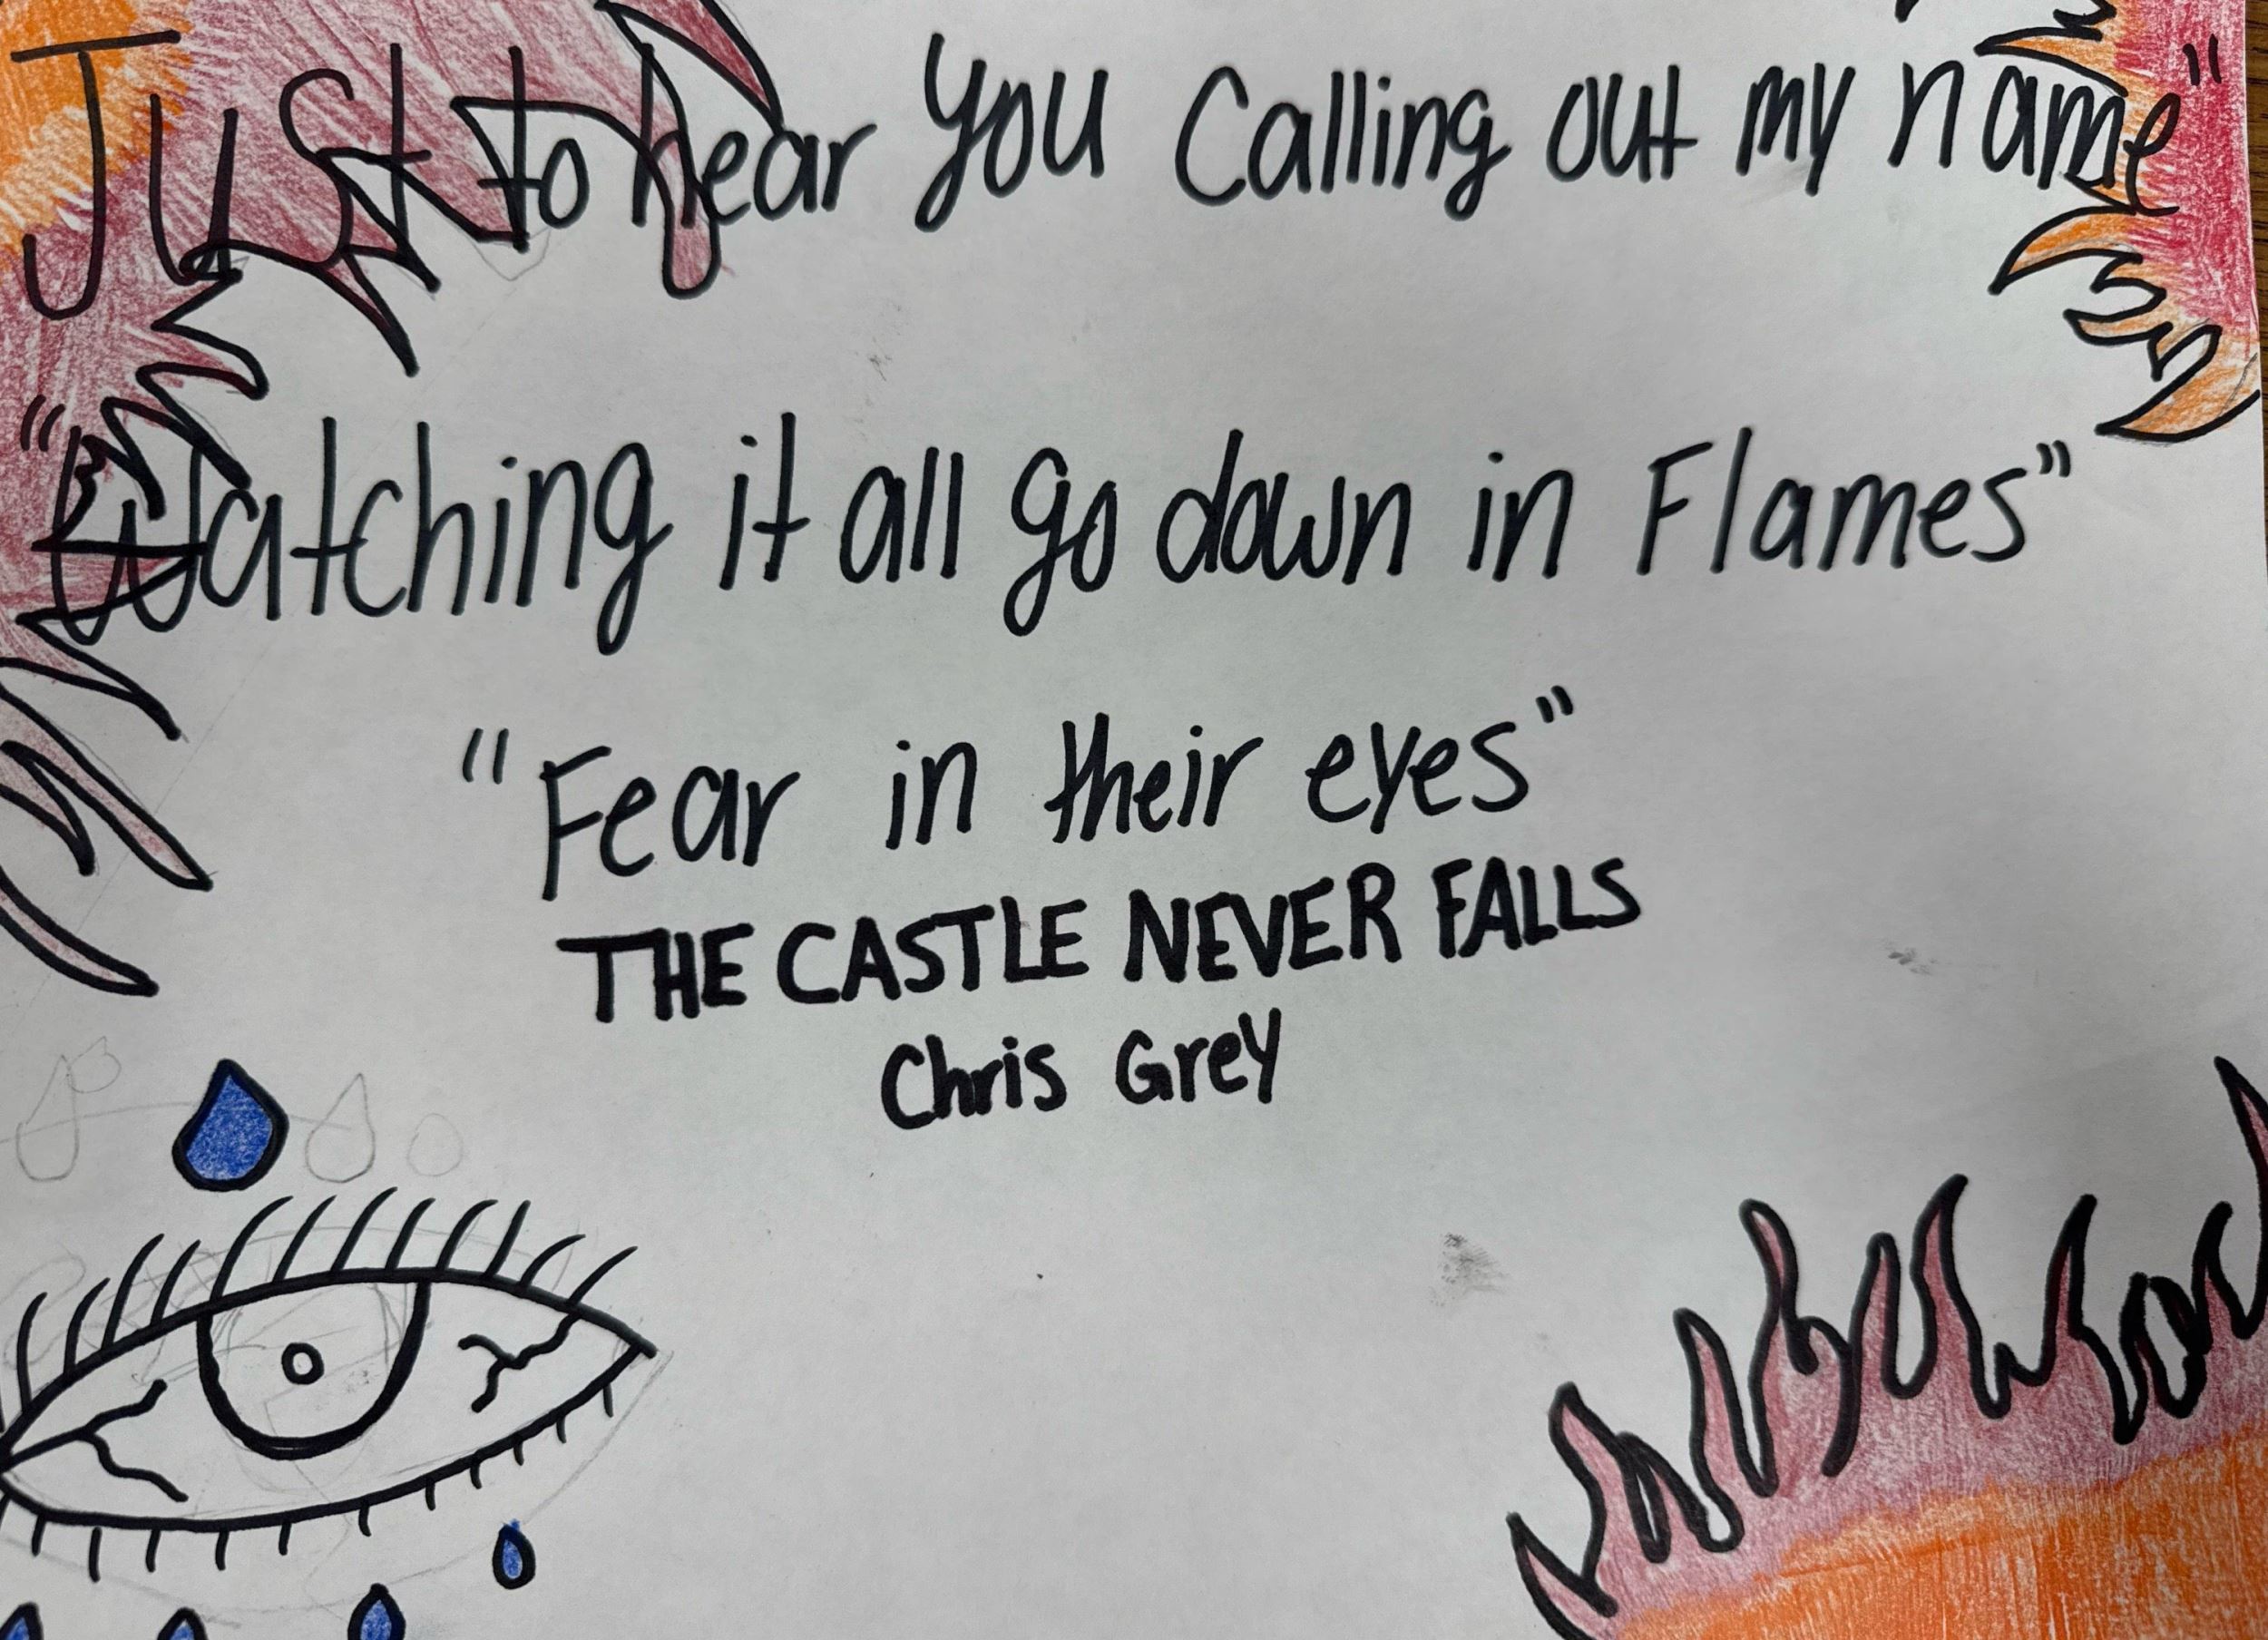 Just to hear you Calling out my name"
"Watching it all go down in Flames"
"Fear in their eyes"
THE CASTLE NEVER FALLS
Chris Grey